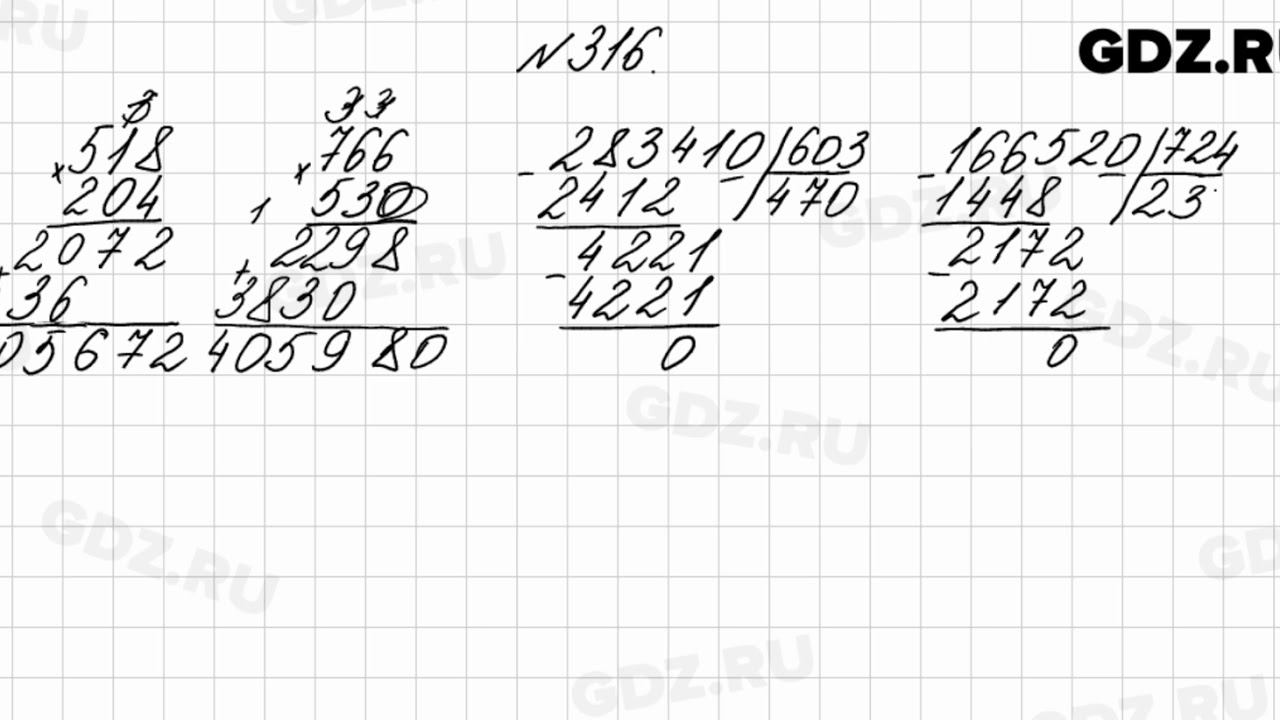 №316.
GDZ.RU
3
33
518
766
283410 603
166520 724
× 204
× 530
- 2412 470
- 1448 23
1
2072
2298
4221
2172
+ 36
+ 3830
- 4221
- 2172
05672
405980
0
0
GDZ.RU
GDZ.RU
GDZ.RU
GDZ.RU
GDZ.RU
GDZ.RU